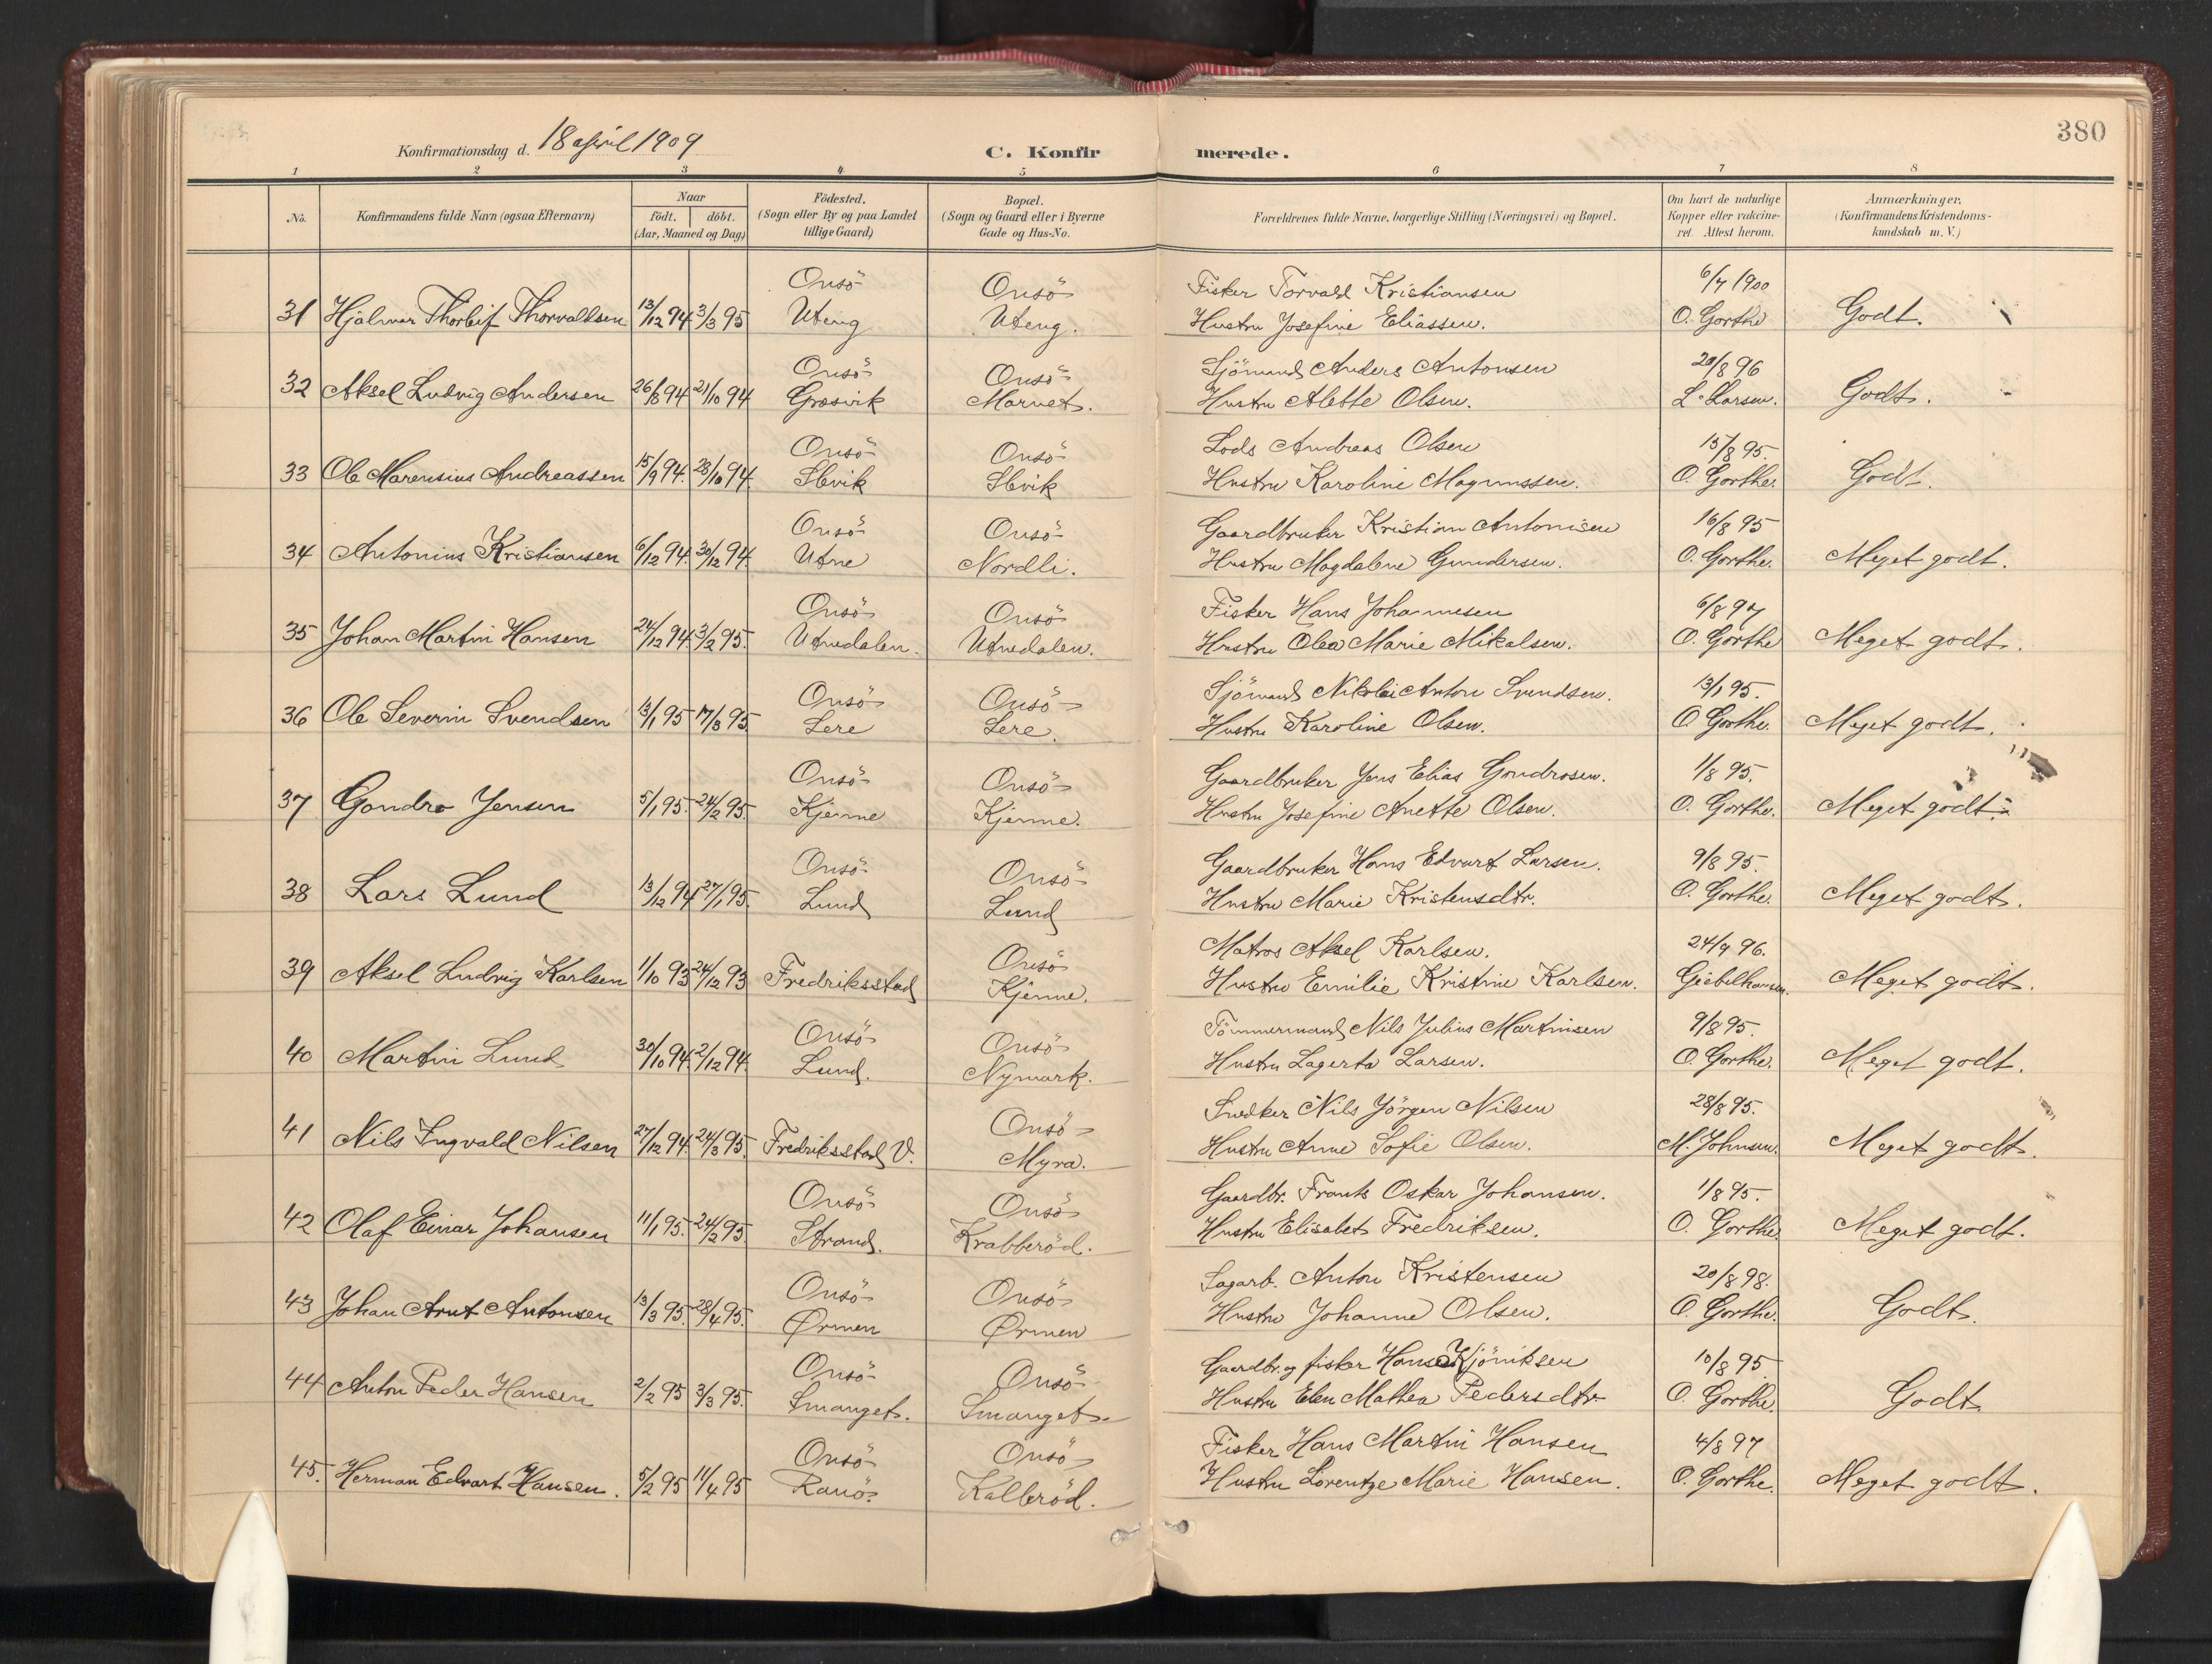 380
Konfirmationsdag d. 18 april 1909
C. Konfirmerede.
1 2 3 4 5 6 7 8
No. Konfirmandens fulde Navn (ogsaa Efternavn) Naar födt. döbt. (Aar, Maaned og Dag) Födested. (Sogn eller By og paa Landet tillige Gaard) Bopæl. (Sogn og Gaard eller i Byerne Gade og Hus-No. Forældrenes fulde Navne, borgerlige Stilling (Næringsvei) og Bopæl. Om havt de naturlige Kopper eller vakcineret. Attest herom. Anmærkninger. (Konfirmandens Kristendomskundskab m. V.)
Onsö Onsö Fisker Torvald Kristiansen 6/7 1900
31 Hjalmar Thorleif Thorvaldsen 13/12 94 3/3 95 Uteng Uteng. Hustru Josefine Eliassen. O. Gorthe Godt.
Onsö Onsö Sjömand Anders Antonsen 20/8 96
32 Aksel Ludvig Andersen 26/8 94 21/10 94 Græsvik Marnet. Hustru Alette Olsen. L. Larsen. Godt.
Onsö Onsö Lods Andreas Olsen 15/8 95.
33 Ole Marensius Andreassen 15/9 94. 28/10 94. Slevik Slevik Hustru Karoline Magnussen. O. Gorthe. Godt.
Onsö Onsö Gaardbruker Kristian Antonisen 16/8 95
34 Antonius Kristiansen 6/12 94. 30/12 94. Utne Nordli. Hustru Magdalene Gundersen. O. Gorthe. Meget godt.
Onsö Onsö Fisker Hans Johannesen 6/8 97
35 Johan Martin Hansen 24/12 94. 3/2 95. Utnedalen. Utnedalen. Hustru Olea Marie Mikalsen. O. Gorthe Meget godt.
Onsö Onsö Sjömand Nikolai Anton Svendsen. 13/1 95.
36 Ole Severin Svendsen 13/1 95 17/3 95. Lere Lere. Hustru Karoline Olsen. O Gorthe. Meget godt.
Onsö Onsö Gaardbruker Jens Elias Gondrosen. 1/8 95.
37 Gondro Jensen 5/1 95. 24/2 95. Kjenne Kjenne. Hustru Josefine Anette Olsen. O. Gorthe. Meget godt.
Onsö Onsö Gaardbruker Hans Edvart Larsen. 9/8 95.
38 Lars Lund 13/12 94 27/1 95. Lund Lund Hustru Marie Kristensdtr. O. Gorthe. Meget godt.
Onsö Matros Aksel Karlsen. 24/9 96.
39 Aksel Ludvig Karlsen 1/10 93 24/12 93 Fredriksstad Kjenne. Hustru Emilie Kristine Karlsen. Giebelhausen. Meget godt.
Onsö Onsö Tömmermand Nils Julius Martinsen 9/8 95.
40 Martin Lund 30/10 94. 2/12 94. Lund. Nymark. Hustru Lagerta Larsen. O. Gorthe. Meget godt.
Onsö Snedker Nils Jörgen Nilsen 28/8 95.
41 Nils Ingvald Nilsen 27/12 94. 24/3 95. Fredriksstad V. Myra. Hustru Anne Sofie Olsen. M. Johnsen. Meget godt.
Onsö Onsö Gaardbr. Frants Oskar Johansen. 1/8 95.
42 Olaf Einar Johansen 11/1 95. 24/2 95. Strand. Krabberöd. Hustru Elisabet Fredriksen. O. Gorthe. Meget godt.
Onsö Onsö Sagarb. Anton Kristensen 20/8 98.
43 Johan Arnt Antonsen 13/3 95. 28/4 95. Ørmen Ørmen Hustru Johanne Olsen. O. Gorthe. Godt.
Onsö Onsö Gaardbr. og fisker Hans Kjöniksen 10/8 95
44 Anton Peder Hansen 2/2 95 3/3 95. Smauget. Smauget. Hustru Elen Mathea Pedersdtr O. Gorthe. Godt.
Onsö Onsö Fisker Hans Martin Hansen 4/8 97
45. Herman Edvart Hansen. 5/2 95 11/4 95 Rauö. Kalleröd. Hustru Lorentze Marie Hansen. O. Gorthe. Meget godt.